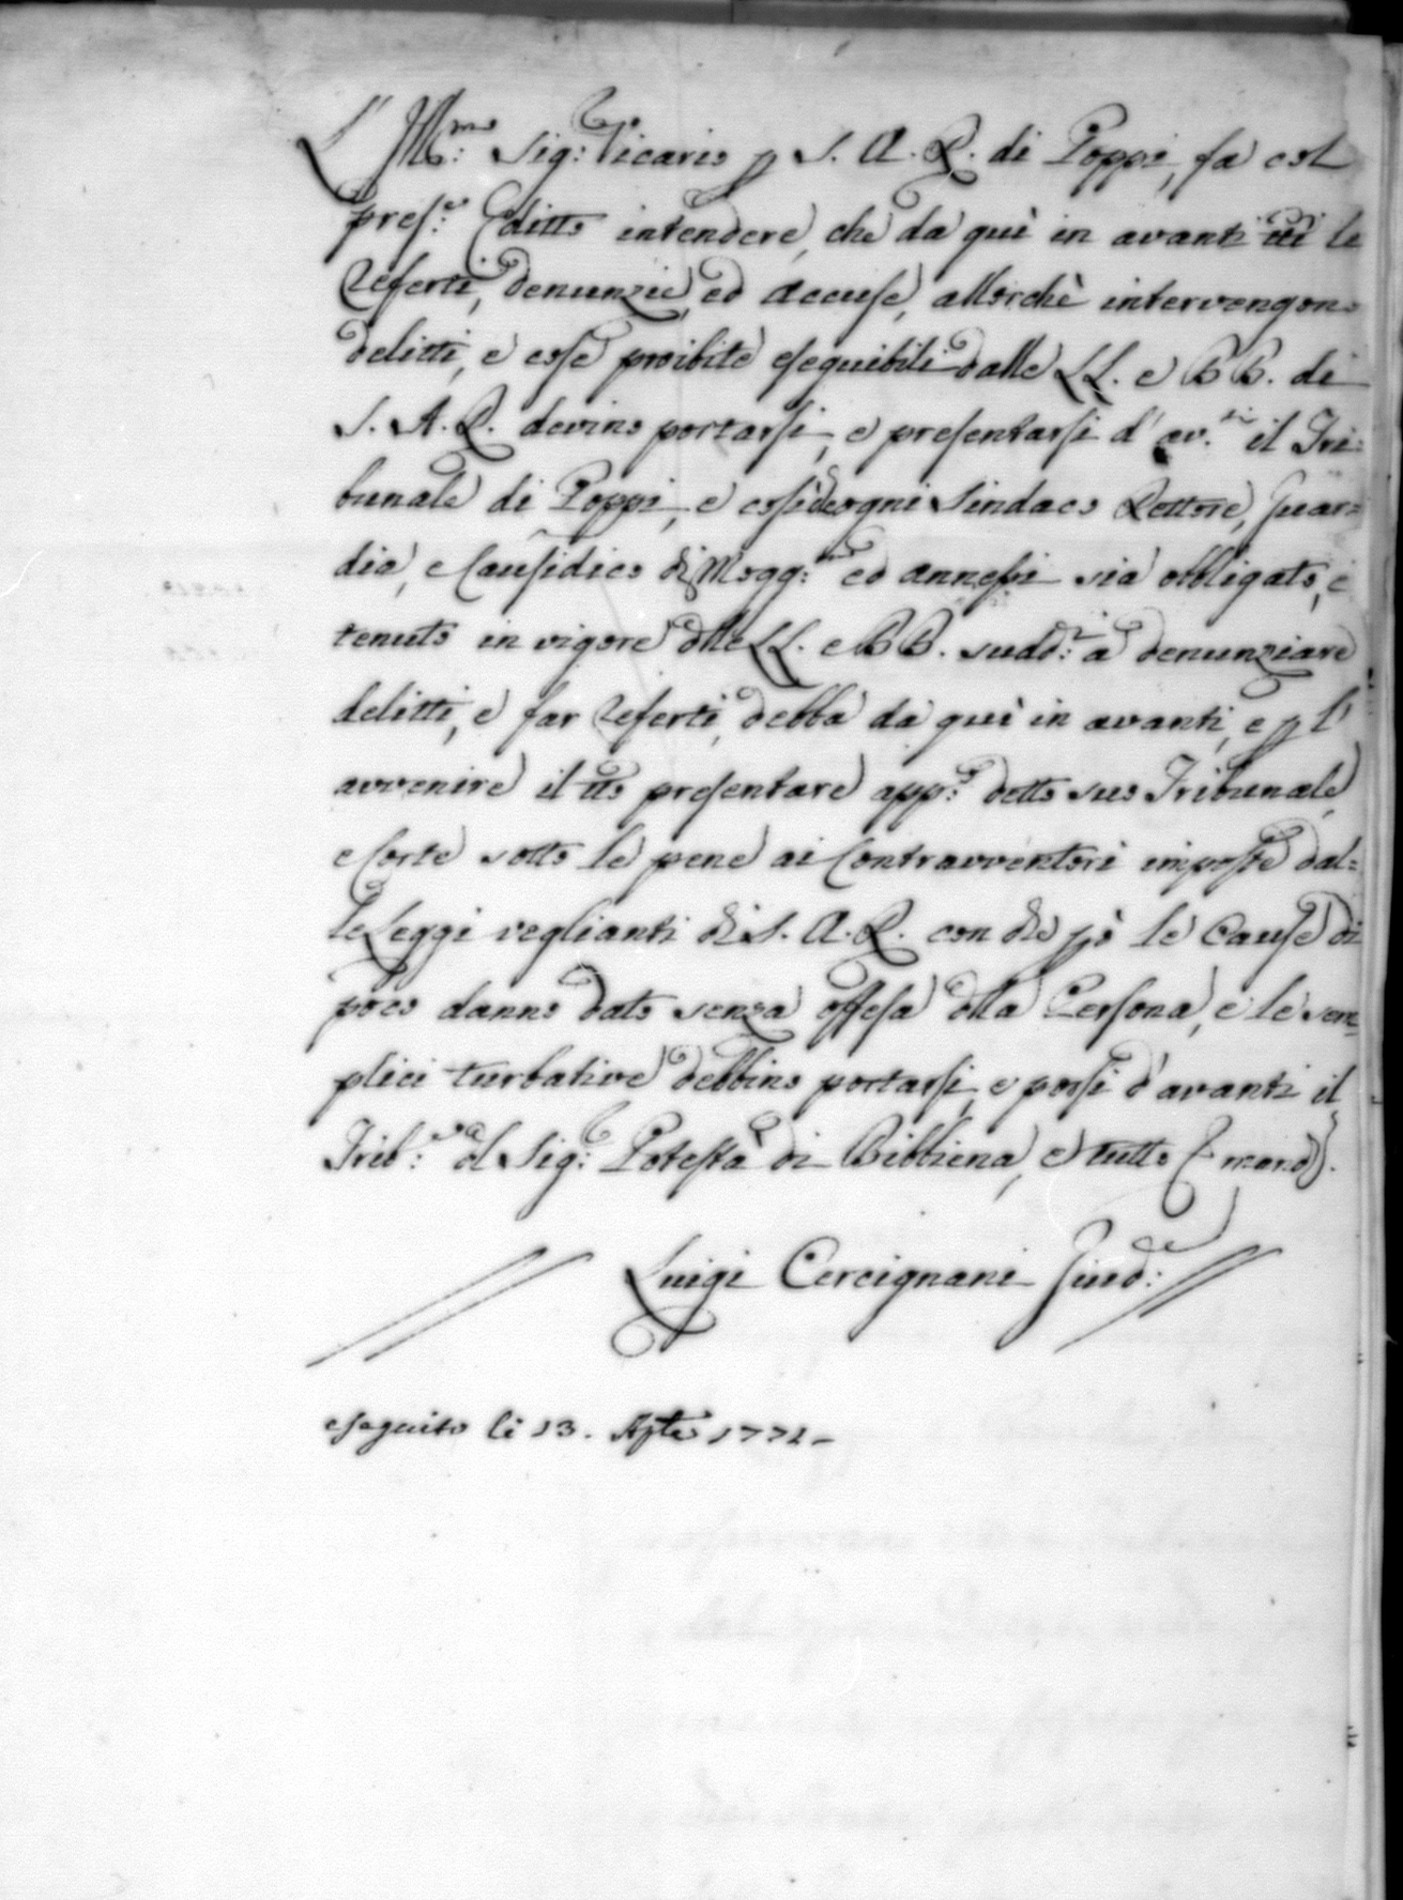 L' Ill:mo Sig:r Vicario p S. A. R. di Poppi, fa col
pres:e Editto intendere, che da quì in avanti tti le
Referti, denunzie, ed accuse, allorchè intervengono
delitti, e cose proibite eseguibili dalle LL. e BB. di
S. A. R. devino portarsi, e presentarsi d' av.ti il Tri:
bunale di Poppi, e così d'ogni Sindaco Rettore, Guar=
dia, e Causidico di Mogg:na ed annessi sia obbligato, e
tenuto in vigore dlle LL. e BB. sudd:i a denunziare
delitti, e far referti, debba da quì in avanti, e p l'
avvenire il tto presentare app:o detto suo Tribunale,
e Corte sotto le pene ai Contravventori imposte dal=
le Leggi veglianti di S. A. R. con dic pò le Cause di
poco danno dato senza offesa dlla Persona, e le sem=
plici turbative debbino portarsi, e porsi d'avanti il
Trib:e dl Sig:r Potestà di Bibbiena, e tutto mand).
Luigi Cercignani Giud:e
eseguito li 13. 1771-